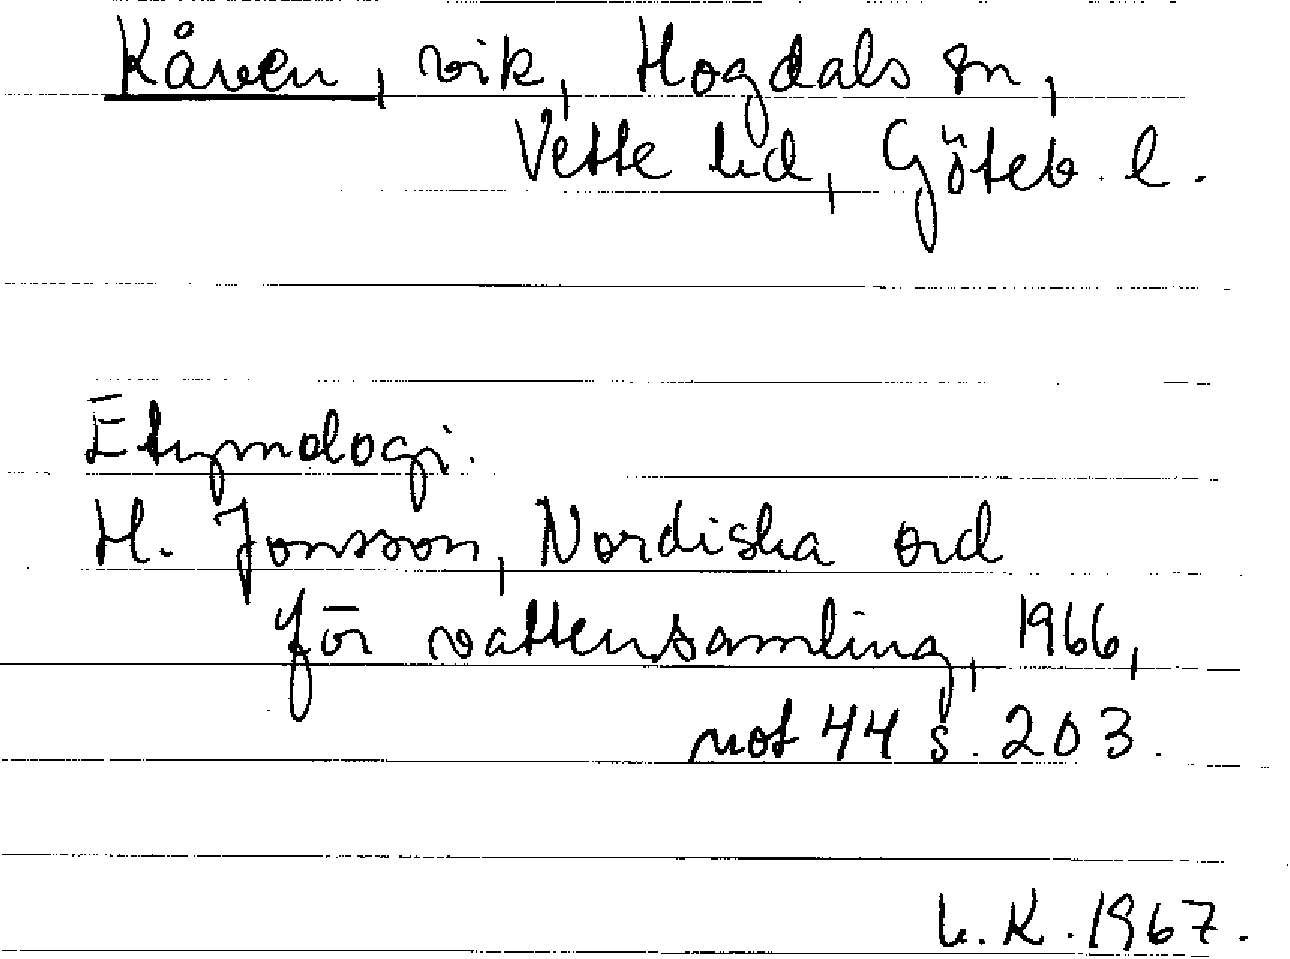 Kåven, vik, Hogdals sn,
Vette hd, Göteb. l.
Etymologi.
H. Jonsson, Nordiska ord
för vattensamling, 1966,
not 44 s. 203.
L. K. 1967.